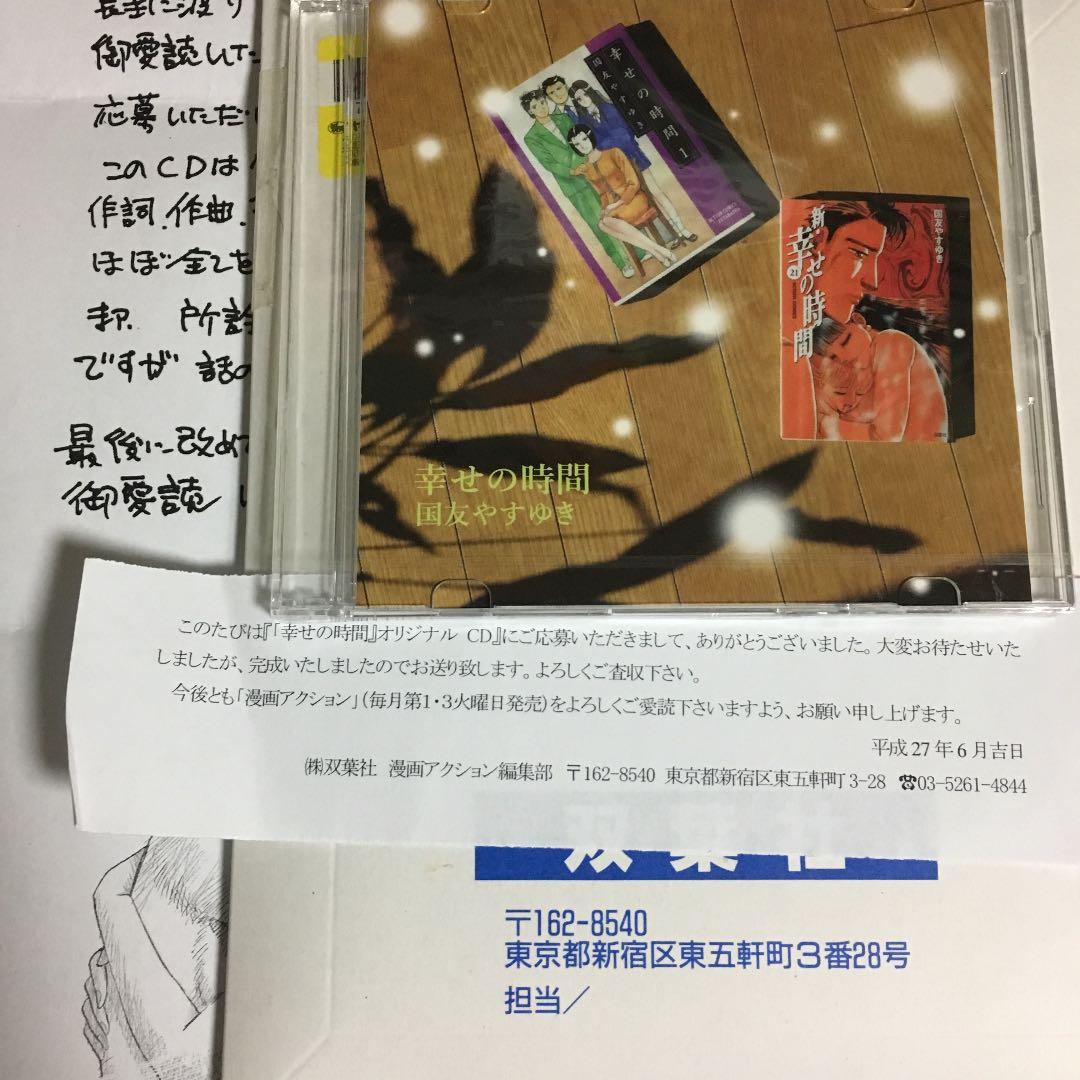 長年に渡り
御愛読した
応募いただ
このCDは
作詞.作曲.
ほぼ全てを
ですが 話の
最後に改めて
御愛読
幸せの時間 1
国友やすゆき
新・幸せの時間
21
国友やすゆき
幸せの時間
国友やすゆき
このたびは『「幸せの時間」オリジナル CD』にご応募いただきまして、ありがとうございました。大変お待たせいた
しましたが、完成いたしましたのでお送り致します。よろしくご査収下さい。
今後とも「漫画アクション」(毎月第1・3火曜日発売)をよろしくご愛読下さいますよう、お願い申し上げます。
平成 27 年 6 月吉日
㈱双葉社 漫画アクション編集部 〒162-8540 東京都新宿区東五軒町 3-28 ☎03-5261-4844
双葉社
〒162-8540
東京都新宿区東五軒町3番28号
担当／